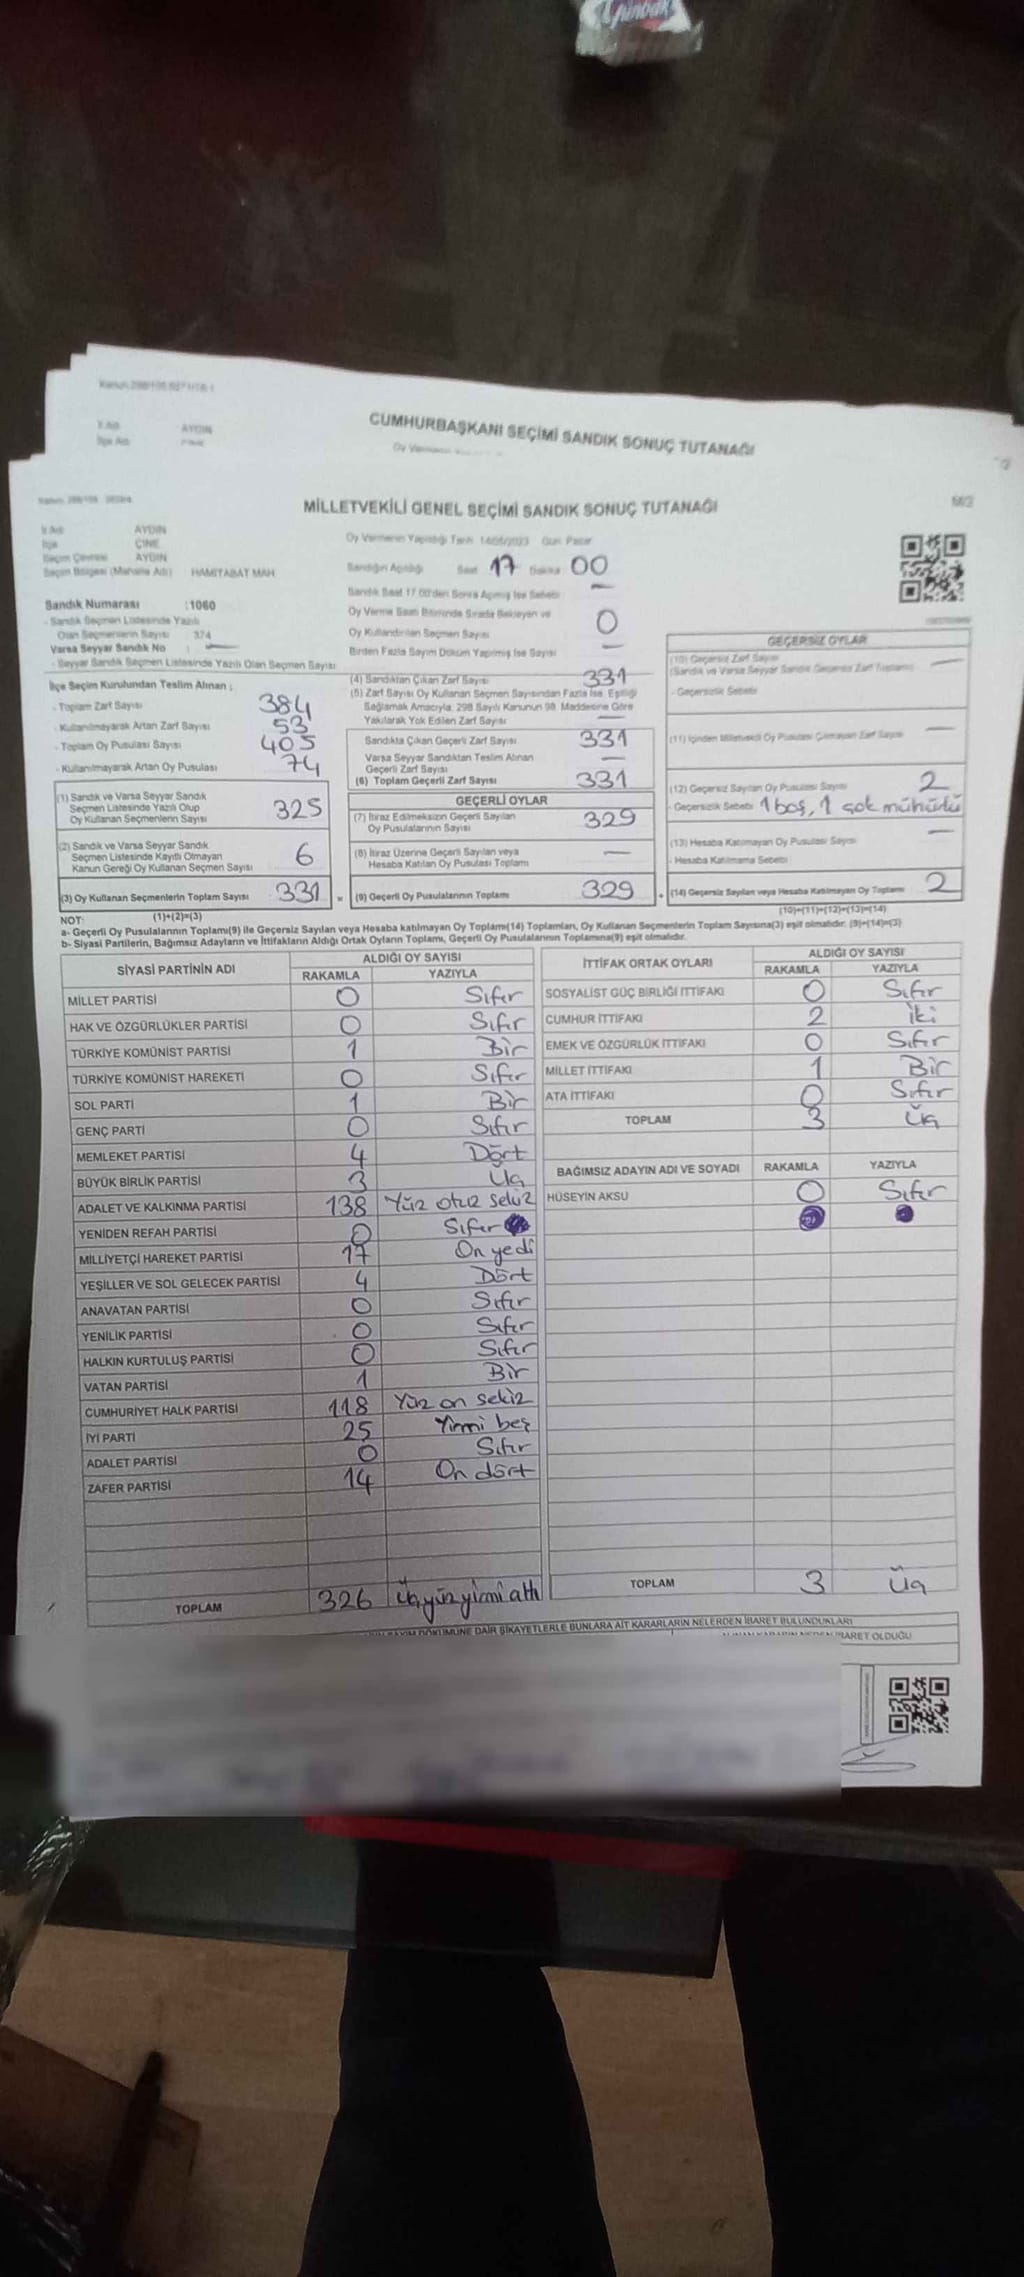 CUMHURBAŞKANI SEÇİMİ SANDIK SONUÇ TUTANAĞI
İl Adı AYDIN
MİLLETVEKİLİ GENEL SEÇİMİ SANDIK SONUÇ TUTANAĞI
İl Adı AYDIN
İlçe ÇİNE
Seçim Çevresi AYDIN
Seçim Bölgesi (Mahalle Adı) HAMİTABAT MAH.
Oy Vermenin Yapıldığı Tarih 14/05/2023 Gün: Pazar
Sandığın Açıldığı Saat 17 Dakika 00
Sandık Saat 17.00'den Sonra Açılmış İse Sebebi —
Oy Verme Saati Bitiminde Sırada Bekleyen ve
Oy Kullandırılan Seçmen Sayısı 0
Birden Fazla Sayım Döküm Yapılmış İse Sayısı —
Sandık Numarası :1060
- Sandık Seçmen Listesinde Yazılı
Olan Seçmenlerin Sayısı : 374
Varsa Seyyar Sandık No : —
- Seyyar Sandık Seçmen Listesinde Yazılı Olan Seçmen Sayısı
İlçe Seçim Kurulundan Teslim Alınan ;
- Toplam Zarf Sayısı 384
- Kullanılmayarak Artan Zarf Sayısı 53
- Toplam Oy Pusulası Sayısı 405
- Kullanılmayarak Artan Oy Pusulası 74
(1) Sandık ve Varsa Seyyar Sandık
Seçmen Listesinde Yazılı Olup
Oy Kullanan Seçmenlerin Sayısı 325
(2) Sandık ve Varsa Seyyar Sandık
Seçmen Listesinde Kayıtlı Olmayan
Kanun Gereği Oy Kullanan Seçmen Sayısı 6
(3) Oy Kullanan Seçmenlerin Toplam Sayısı 331 =
(4) Sandıktan Çıkan Zarf Sayısı 331
(5) Zarf Sayısı Oy Kullanan Seçmen Sayısından Fazla İse, Eşitliği
Sağlamak Amacıyla, 298 Sayılı Kanunun 98. Maddesine Göre
Yakılarak Yok Edilen Zarf Sayısı —
Sandıkta Çıkan Geçerli Zarf Sayısı 331
Varsa Seyyar Sandıktan Teslim Alınan
Geçerli Zarf Sayısı —
(6) Toplam Geçerli Zarf Sayısı 331
GEÇERLİ OYLAR
(7) İtiraz Edilmeksizin Geçerli Sayılan
Oy Pusulalarının Sayısı 329
(8) İtiraz Üzerine Geçerli Sayılan veya
Hesaba Katılan Oy Pusulası Toplamı —
(9) Geçerli Oy Pusulalarının Toplamı 329 +
GEÇERSİZ OYLAR
(10) Geçersiz Zarf Sayısı
(Sandık ve Varsa Seyyar Sandık Geçersiz Zarf Toplamı) —
- Geçersizlik Sebebi
(11) İçinden Milletvekili Oy Pusulası Çıkmayan Zarf Sayısı —
(12) Geçersiz Sayılan Oy Pusulası Sayısı 2
- Geçersizlik Sebebi 1 boş, 1 çok mühürlü
(13) Hesaba Katılmayan Oy Pusulası Sayısı —
- Hesaba Katılmama Sebebi
(14) Geçersiz Sayılan veya Hesaba Katılmayan Oy Toplamı 2
NOT: (1)+(2)=(3)
(10)+(11)+(12)+(13)=(14)
a- Geçerli Oy Pusulalarının Toplamı(9) ile Geçersiz Sayılan veya Hesaba katılmayan Oy Toplamı(14) Toplamları, Oy Kullanan Seçmenlerin Toplam Sayısına(3) eşit olmalıdır. (9)+(14)=(3)
b- Siyasi Partilerin, Bağımsız Adayların ve İttifakların Aldığı Ortak Oyların Toplamı, Geçerli Oy Pusulalarının Toplamına(9) eşit olmalıdır.
SİYASİ PARTİNİN ADI ALDIĞI OY SAYISI
RAKAMLA YAZIYLA
MİLLET PARTİSİ 0 Sıfır
HAK VE ÖZGÜRLÜKLER PARTİSİ 0 Sıfır
TÜRKİYE KOMÜNİST PARTİSİ 1 Bir
TÜRKİYE KOMÜNİST HAREKETİ 0 Sıfır
SOL PARTİ 1 Bir
GENÇ PARTİ 0 Sıfır
MEMLEKET PARTİSİ 4 Dört
BÜYÜK BİRLİK PARTİSİ 3 Üç
ADALET VE KALKINMA PARTİSİ 138 Yüz otuz sekiz
YENİDEN REFAH PARTİSİ 0 Sıfır
MİLLİYETÇİ HAREKET PARTİSİ 17 On yedi
YEŞİLLER VE SOL GELECEK PARTİSİ 4 Dört
ANAVATAN PARTİSİ 0 Sıfır
YENİLİK PARTİSİ 0 Sıfır
HALKIN KURTULUŞ PARTİSİ 0 Sıfır
VATAN PARTİSİ 1 Bir
CUMHURİYET HALK PARTİSİ 118 Yüz on sekiz
İYİ PARTİ 25 Yirmi beş
ADALET PARTİSİ 0 Sıfır
ZAFER PARTİSİ 14 On dört
TOPLAM 326 Üçyüzyirmi altı
İTTİFAK ORTAK OYLARI ALDIĞI OY SAYISI
RAKAMLA YAZIYLA
SOSYALİST GÜÇ BİRLİĞİ İTTİFAKI 0 Sıfır
CUMHUR İTTİFAKI 2 İki
EMEK VE ÖZGÜRLÜK İTTİFAKI 0 Sıfır
MİLLET İTTİFAKI 1 Bir
ATA İTTİFAKI 0 Sıfır
TOPLAM 3 Üç
BAĞIMSIZ ADAYIN ADI VE SOYADI RAKAMLA YAZIYLA
HÜSEYİN AKSU 0 Sıfır
TOPLAM 3 Üç
SAYIM DÖKÜMÜNE DAİR ŞİKAYETLERLE BUNLARA AİT KARARLARIN NELERDEN İBARET BULUNDUKLARI
İBARET OLDUĞU